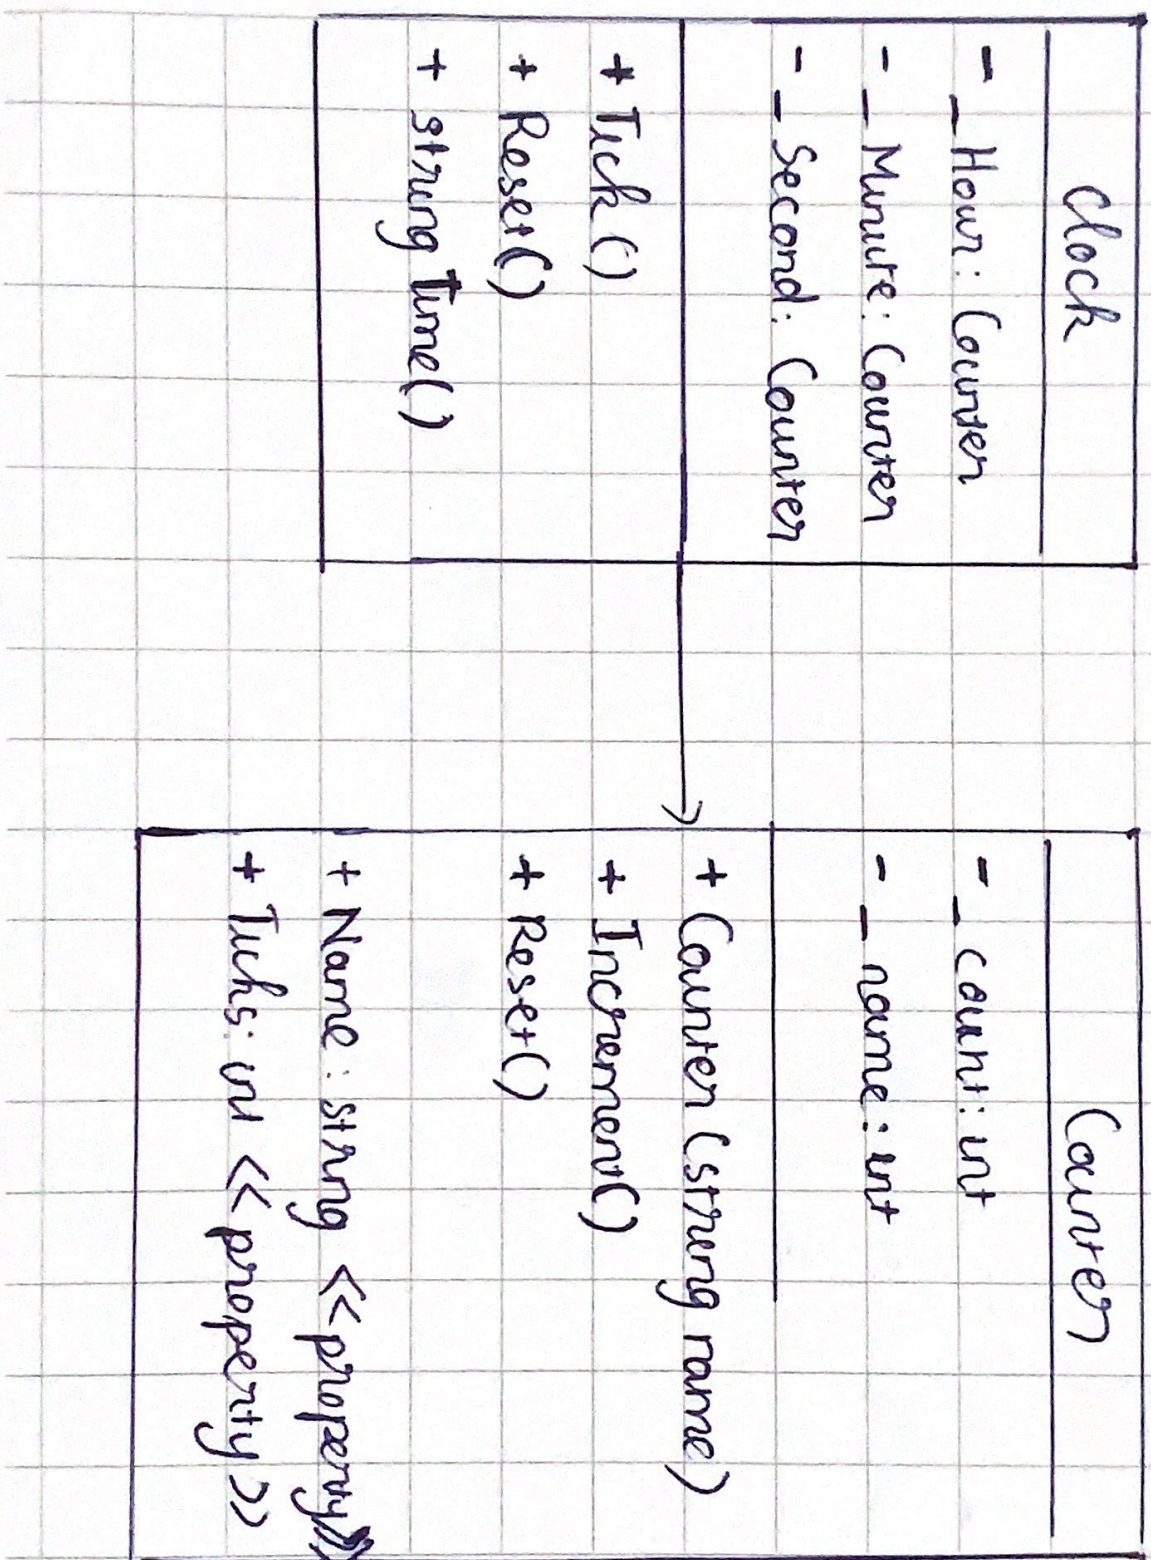 Clock
- _Hour: Counter
- _Minute: Counter
- _Second: Counter
+ Tick()
+ Reset()
+ string Time()
Counter
- _count: int
- _name: int
+ Counter (string name)
+ Increment()
+ Reset()
+ Name: string <<property>>
+ Ticks: int <<property>>